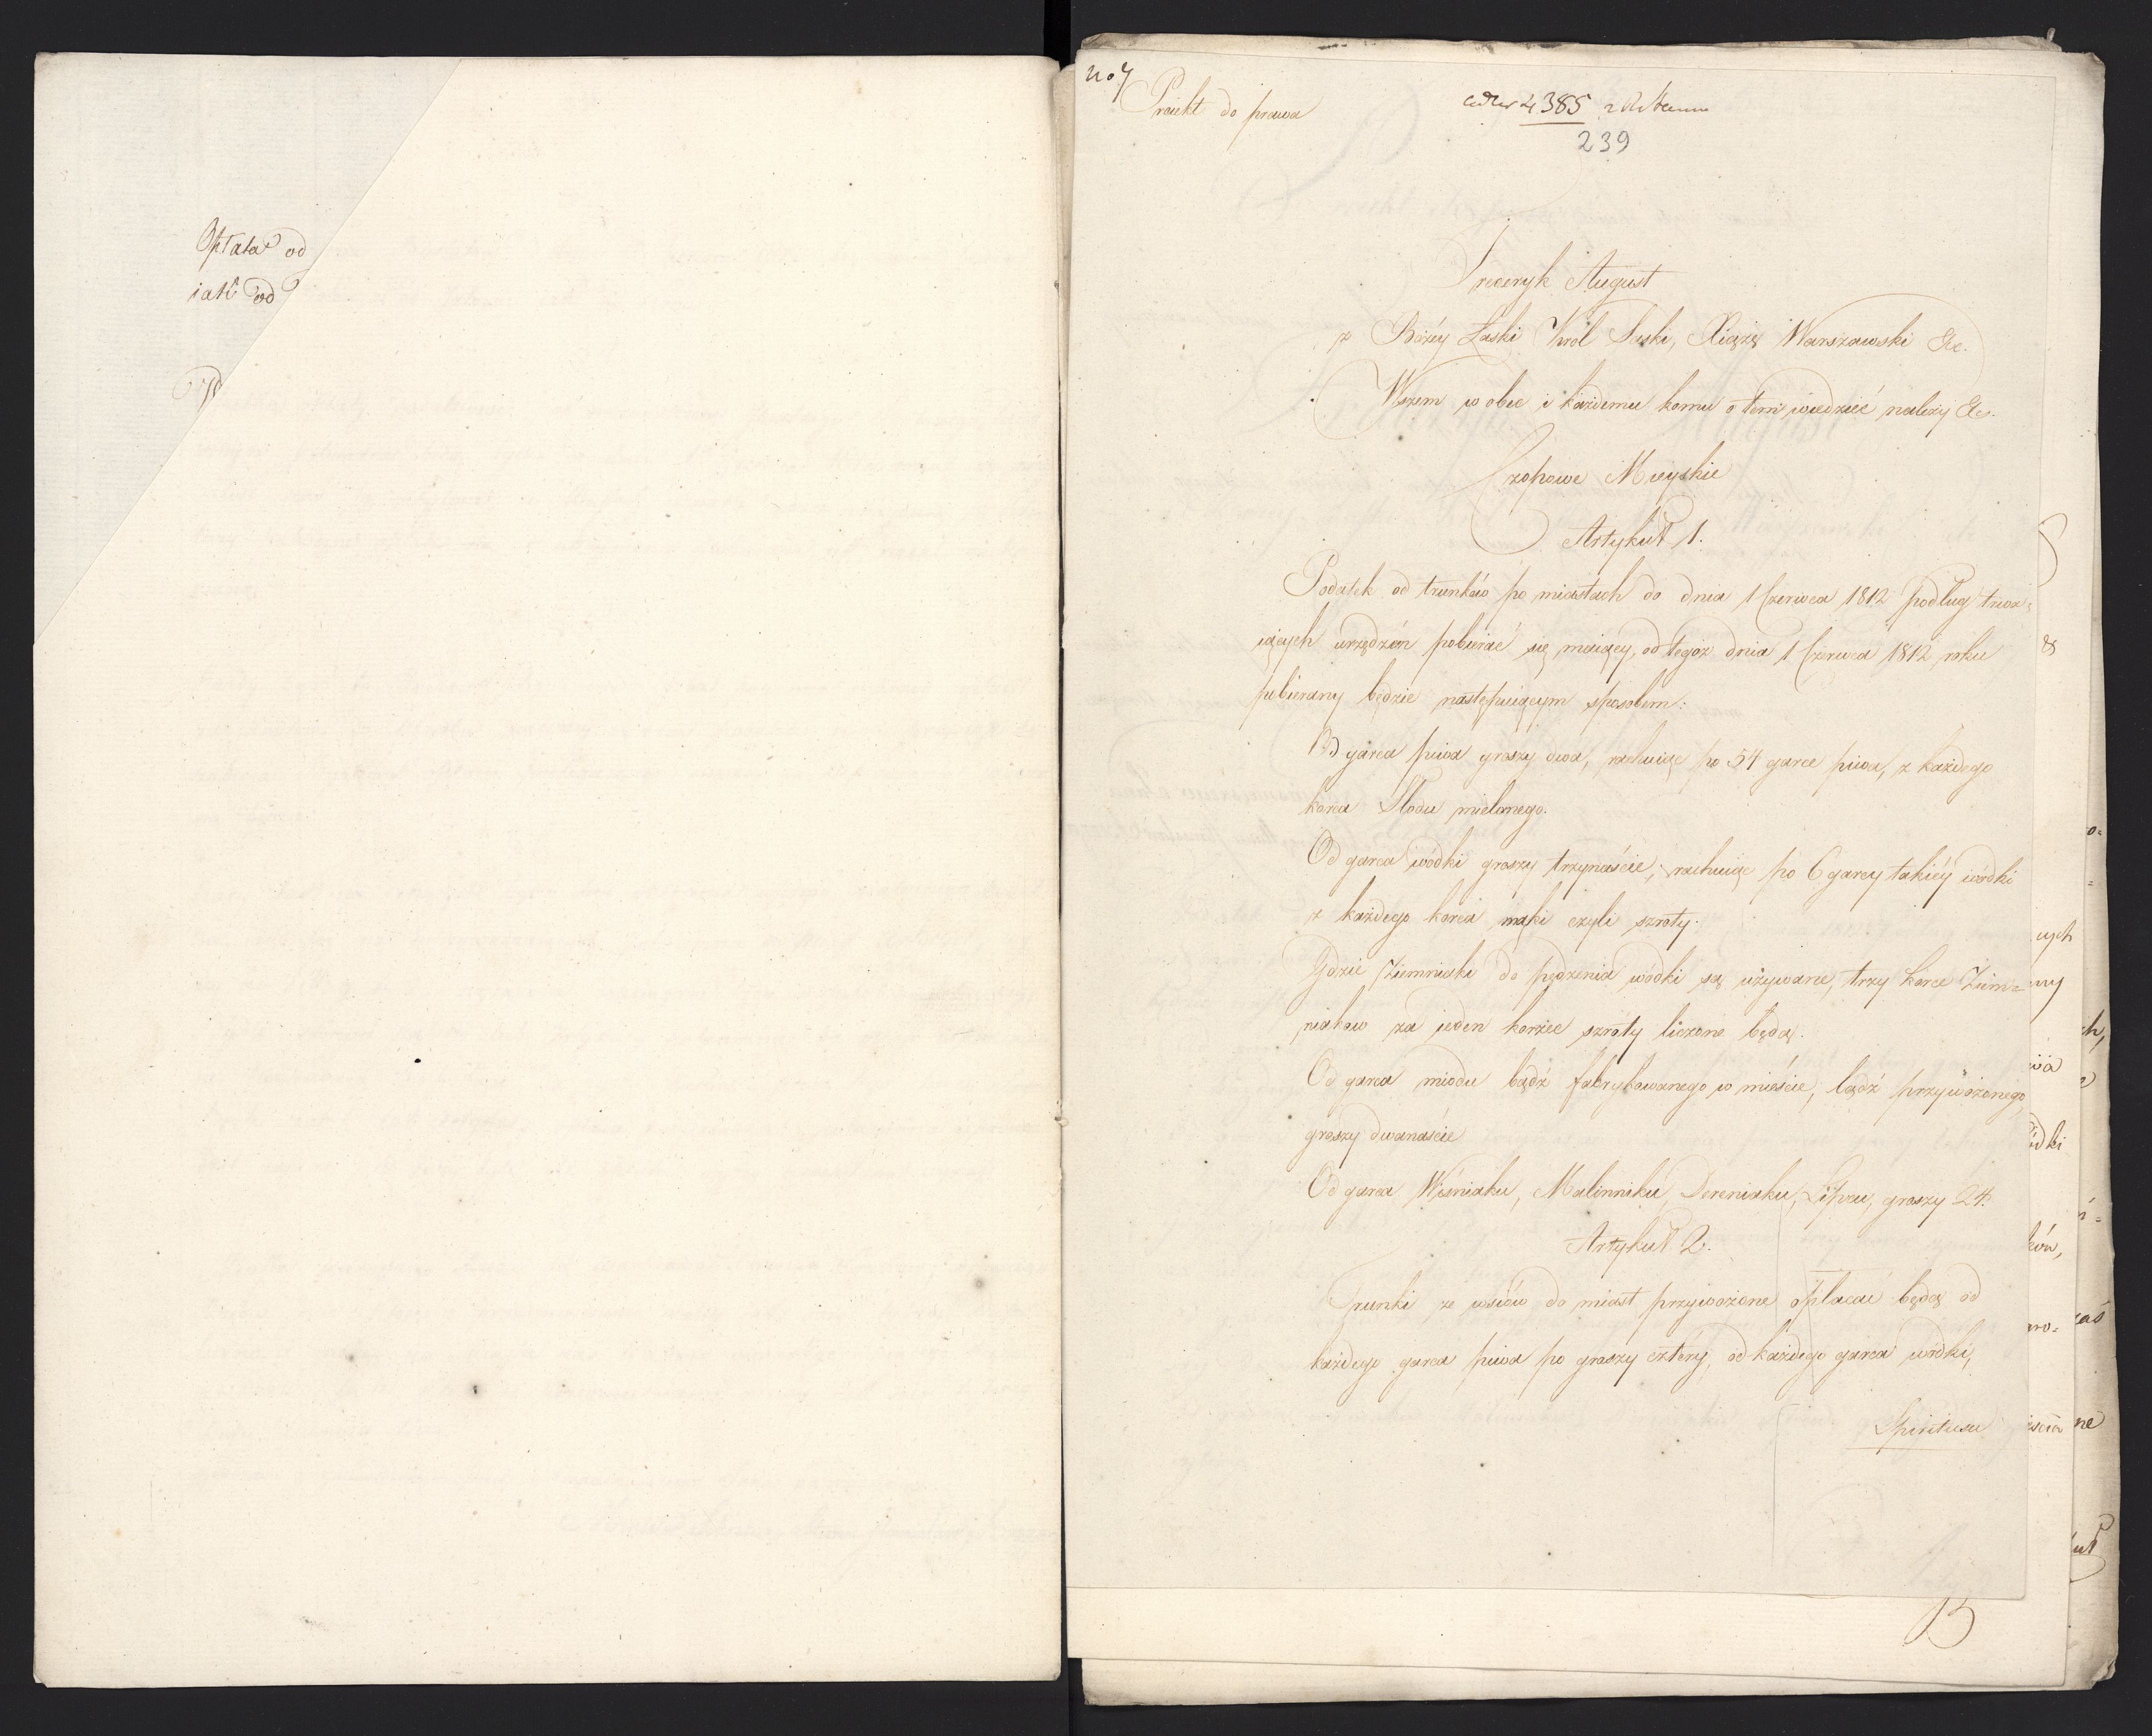 Opłata od
iak od
No 7
Proiekt do prawa
4385
239
Frederyk August
z Bożéy Łaski Król Saski, Xiążę Warszawski &c.
Wszem w obec i każdemu komu o tem wiedzieć należy &c.
Czopowe Mieyskie
Artykuł 1.
Podatek od trunków po miastach do dnia 1 Czerwca 1812 podług trwa=
iących urządzeń pobierać się maiący, od tegoż dnia 1 Czerwca 1812 roku
pobierany będzie następuiącym sposobem:
Od garca piwa groszy dwa, rachuiąc po 54 garce piwa, z każdego
korca Słodu mielonego.
Od garca wódki groszy trzynaście, rachuiąc po 6 garcy takiéy wódki
z każdego korca mąki czyli szróty.
Gdzie Ziemniaki do pędzenia wódki są używane, trzy korce Ziem=
niaków za ieden korzec szróty liczone będą.
Od garca miodu bądź fabrykowanego w mieście, bądź przywożonego
groszy dwanaście
Od garca Wiśniaku, Malinniku, Dereniaku, Lipcu, groszy 24.
Artykuł 2.
Trunki ze wsiów do miast przywożone opłacać będą od
każdego garca piwa po groszy cztéry, od każdego garca wódki,
Spiritusu